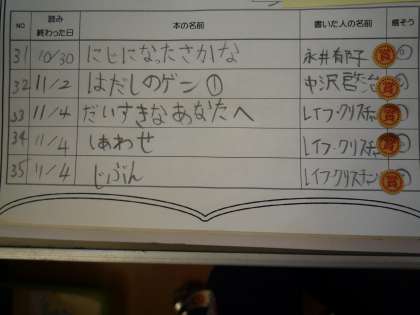 NO 読み終わった日 本の名前 書いた人の名前 感そう
31 10/30 にじになったさかな 永井郁子 賞
32 11/2 はだしのゲン① 中沢啓治 賞
33 11/4 だいすきなあなたへ レイフ・クリスチャ 賞
34 11/4 しあわせ レイフ・クリスチャ 賞
35 11/4 じぶん レイフ・クリスチャン 賞